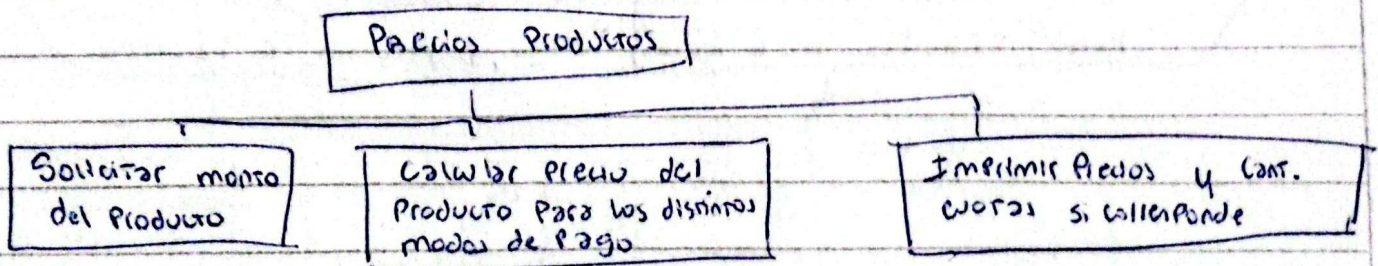 Precios Productos
Solicitar monto
del Producto
Calcular Precio del
Producto Para los distintos
modos de Pago
Imprimir Precios y Cant.
cuotas si corresponde